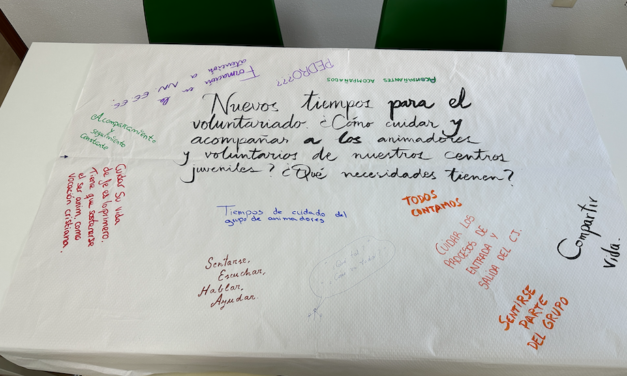 PEDRO???
Formación en la
atención a NN.EE.EE.
Acompañantes acompañados
Nuevos tiempos para el
voluntariado. ¿Cómo cuidar y
acompañar a los animadores
y voluntarios de nuestros centros
juveniles? ¿Qué necesidades tienen?
Acompañamiento
y
seguimiento
Cuidar su vida
de fe es lo primero.
Tiene que sostenerse
el ser anim. como
vocación cristiana.
Tiempos de cuidado del
grupo de animadores
TODOS
CONTAMOS
CUIDAR LOS
PROCESOS DE
ENTRADA Y
SALIDA DEL CJ.
Compartir
vida.
Sentarse,
Escuchar,
Hablar,
Ayudar.
SENTIRSE
PARTE
DEL GRUPO